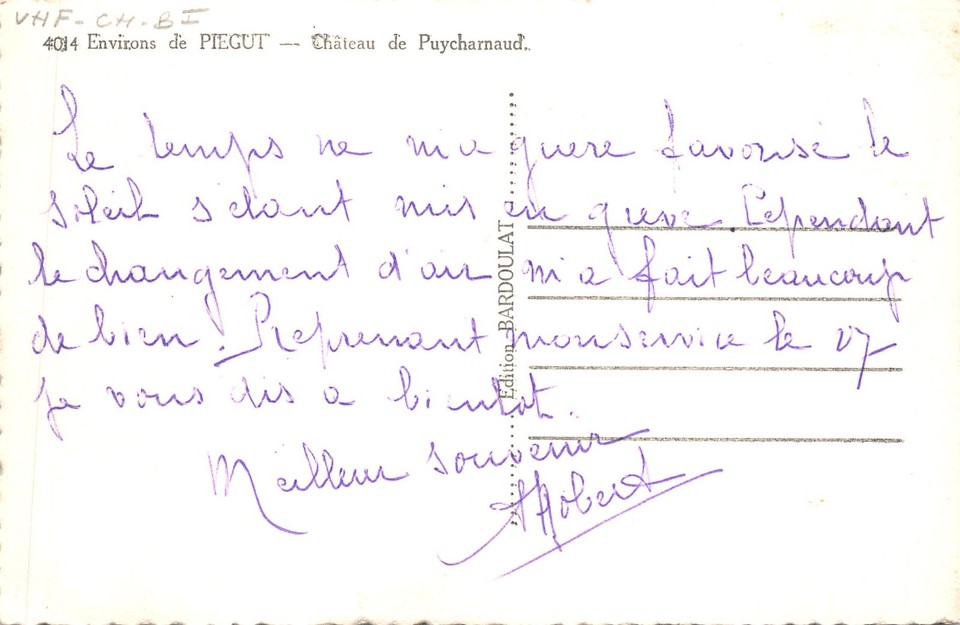 VHF-CH-BI
4014 Environs de PIEGUT — Château de Puycharnaud.
Le temps ne m'a guere favorisé le
soleil s'etant mis en greve. Cependant
le changement d'air m'a fait beaucoup
de bien. Reprenant mon service le 27
je vous dis a bientot.
Meilleur souvenir
Robert
Edition BARDOULAT